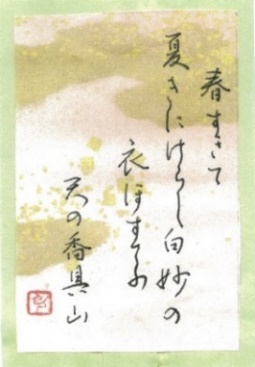 春すきて
夏きにけらし白妙の
衣ほすてふ
天の香具山